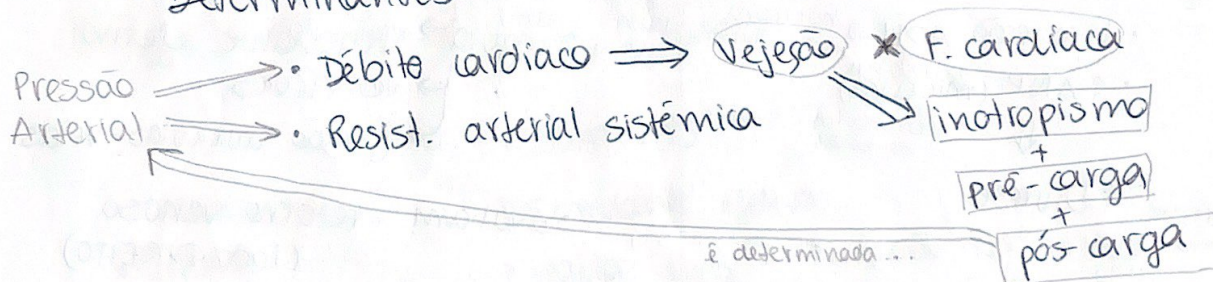 Determinantes
Pressão Arterial
• Débito cardíaco ⇒ Vejeção * F. cardíaca
• Resist. arterial sistémica
inotropismo
+
pré-carga
+
pós-carga
é determinada...